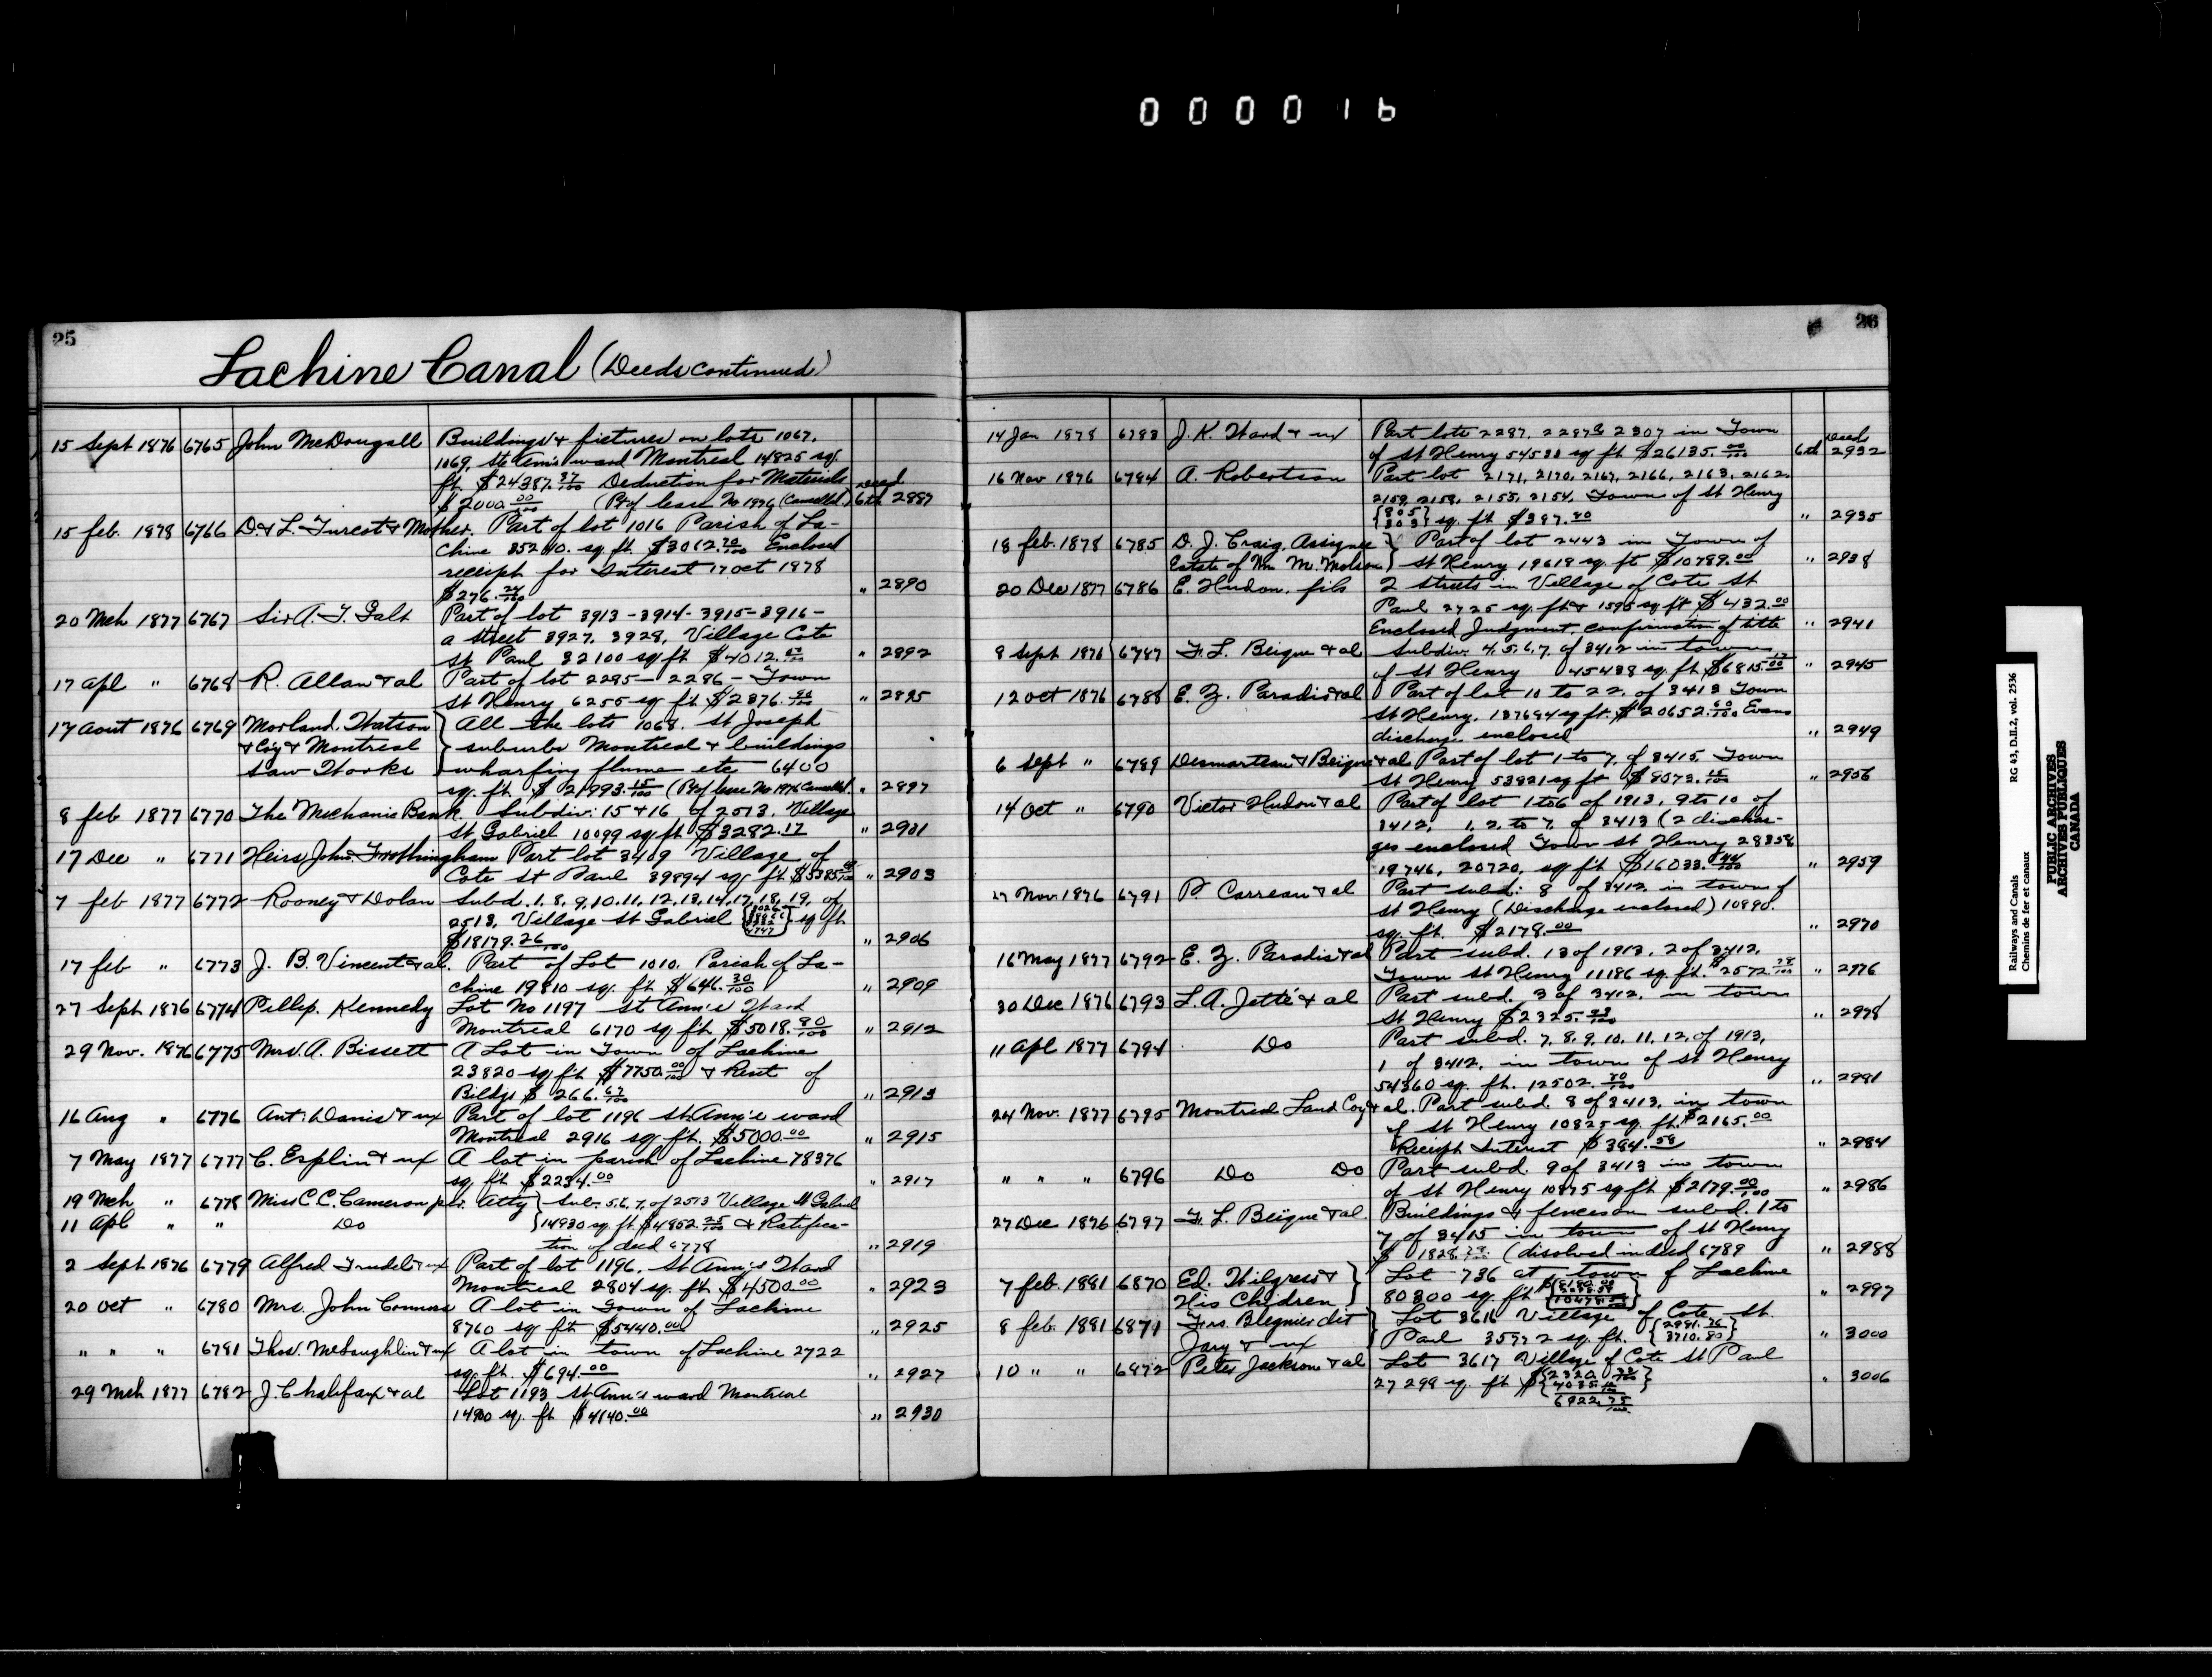 000016
25
Lachine Canal (Deeds continued)
15 Sept 1876 6765 John McDougall Buildings & fictures on lots 1067,
1069, St Ann's ward Montreal 14825 sq.
ft. $24387.37/100 Deduction for Materials
$2000.00/100 (Pt of lease No 1976 (Cancelled.) Deed 6th 2887
15 feb. 1878 6766 D. & L. Turcot & Mother. Part of lot 1016 Parish of La-
chine 35240. sq. ft. $3062.70/100 Enclosed
receipt for Interest 17 oct 1878
$276.24/100 " 2890
20 Mch 1877 6767 Sir A. T. Galt Part of lot 3913-3914-3915-3916-
a street 3927. 3928, Village Cote
St Paul 32100 sq ft $4012. " 2892
17 apl " 6768 R. Allan & al Part of lot 2295-2286- Town
St Henry 6255 sq ft $2376. " 2895
17 aout 1876 6769 Morland. Watson All the lots 1068. St Joseph
& Coy & Montreal suburbs Montreal & buildings
Saw Works wharfing flume etc 6400
sq. ft. $21993.15/100 (Pt of lease No 1976 Cancelled. " 2897
8 feb 1877 6770 The Mechanis Bank. Subdiv: 15 & 16 of 2513. Village
St Gabriel 10099 sq ft $3282.17 " 2901
17 Dec " 6771 Heirs John Frothingham Part lot 3409 Village of
Cote St Paul 39894 sq. ft. $5385. " 2903
7 feb 1877 6772 Rooney & Dolan Subd. 1, 8, 9, 10, 11, 12, 13, 14, 17, 18, 19, of
2513, Village St Gabriel sq ft
$18179.26/100 " 2906
17 feb " 6773 J. B. Vincent & al. Part of Lot 1010. Parish of La-
chine 19810 sq. ft $646.30/100 " 2909
27 Sept 1876 6774 Pillip. Kennedy Lot No 1197 St Ann's Ward
Montreal 6170 sq ft. $5018.80/100 " 2912
29 Nov. 1876 6775 Mrs. A. Bissett A Lot in Town of Lachine
23820 sq ft $7750.00/100 & Rent of
Bildgs $266.67/100 " 2913
16 Aug " 6776 Ant: Danis & ux Part of lot 1196 St Ann's ward
Montreal 2916 sq ft. $5000.00 " 2915
7 May 1877 6777 C. Esplin & ux A lot in parish of Lachine 78376
sq. ft. $2234.00 " 2917
19 Mch " 6778 Miss C. C. Cameron per. Atty Sub. 5. 6. 7. of 2513 Village St Gabriel
11 Apl " " Do 14930 sq. ft. $4852.25/100 & Ratifica-
tion of deed 6778 " 2919
2 Sept 1876 6779 Alfred Trudel & ux Part of lot 1196. St Ann's Ward
Montreal 2804 sq. ft. $4500.00 " 2923
20 oct " 6780 Mrs. John Connors A lot in Town of Lachine
8760 sq ft $5440.00 " 2925
" " " 6781 Thos. McLaughlin & ux A lot in town of Lachine 2722
sq. ft. $694.00 " 2927
29 Mch 1877 6782 J. C halifax & al Lot 1193 St Ann's ward Montreal
14900 sq. ft $4140.00 " 2930
26
14 Jan 1878 6783 J. K. Ward & ux Part lots 2287. 2287B 2307 in Town
of St Henry 54538 sq ft $26135.00/100 Deed 6th 2932
16 Nov 1876 6784 A. Robertson Part lot 2171, 2170, 2167, 2166, 2163, 2162,
2159, 2158, 2155, 2154. Town of St Henry
{805 303} sq. ft $387.80 " 2935
18 feb. 1878 6785 D. J. Craig, Assignee Part of lot 2443 in Town of
Estate of Wm M. Molson St Henry 19618 sq. ft $10789.00 " 2938
20 Dec 1877 6786 E. Hudon, fils 2 streets in Village of Cote St
Paul 2725 sq. ft & 1595 sq ft $432.00
Enclosed Judgment, confirmation of title " 2941
8 Sept 1876 6787 F. L. Beique & al Subdiv. 4. 5. 6. 7. of 3412 in town
of St Henry 45438 sq. ft $6815. " 2945
12 oct 1876 6788 E. Z. Paradis & al Part of lot 10 to 22. of 3413 Town
St Henry. 137684 sq ft. $20652.60/100 Evans
discharge enclosed " 2949
6 Sept " 6789 Desmarteau & Beique & al Part of lot 1 to 7. of 3415. Town
St Henry 53821 sq ft $8073.15/100 " 2956
14 Oct " 6790 Victor Hudon & al Part of lot 1 to 6 of 1913, 9 to 10 of
3412, 1. 2. to 7. of 3413 (2 dischar-
ges enclosed Town St Henry 28358
19746, 20720, sq ft $16033.44/100 " 2959
27 Nov. 1876 6791 P. Carreau & al Part subd: 8 of 3412 in town of
St Henry (Discharge enclosed) 10890.
sq. ft. $2178.00 " 2970
16 May 1877 6792 E. Z. Paradis & al Part subd. 13 of 1913, 2 of 3412,
Town St Henry 11186 sq. ft. $2572.78/100 " 2976
30 Dec 1876 6793 L. A. Jetté & al Part subd. 3 of 3412, in town
St Henry $2325. " 2978
11 Apl 1877 6794 Do Part subd. 7. 8. 9. 10. 11. 12. of 1913,
1 of 3412, in town of St Henry
54360 sq. ft. 12502.80/100 " 2981
24 Nov. 1877 6795 Montreal Land Coy & al. Part subd. 8 of 3413, in town
of St Henry 10825 sq. ft. $2165.00
Receipt Interest $384.58 " 2984
" " " 6796 Do Do Part subd. 9 of 3413 in town
of St Henry 10875 sq ft $2179.00/100 " 2986
27 Dec 1876 6797 F. L. Beïque & al. Buildings & fences on subd. 1 to
7 of 3415 in town of St Henry
$1828. (disolved in deed 6789 " 2988
7 feb. 1881 6870 Ed. Wilgress & Lot 736 at town of Lachine
His Chidren 80300 sq. ft " 2997
8 feb. 1881 6871 Frs. Blegnier dit Lot 3616 Village of Cote St.
Jary & ux Paul 35772 sq. ft. {2981.76 3710.80} " 3000
10 " " 6872 Peter Jackson & al Lot 3617 Village of Cote St Paul
27299 sq. ft $ 6922.75/100 " 3006
Railways and Canals RG 43, D.II.2, vol. 2536
Chemins de fer et canaux
PUBLIC ARCHIVES
ARCHIVES PUBLIQUES
CANADA